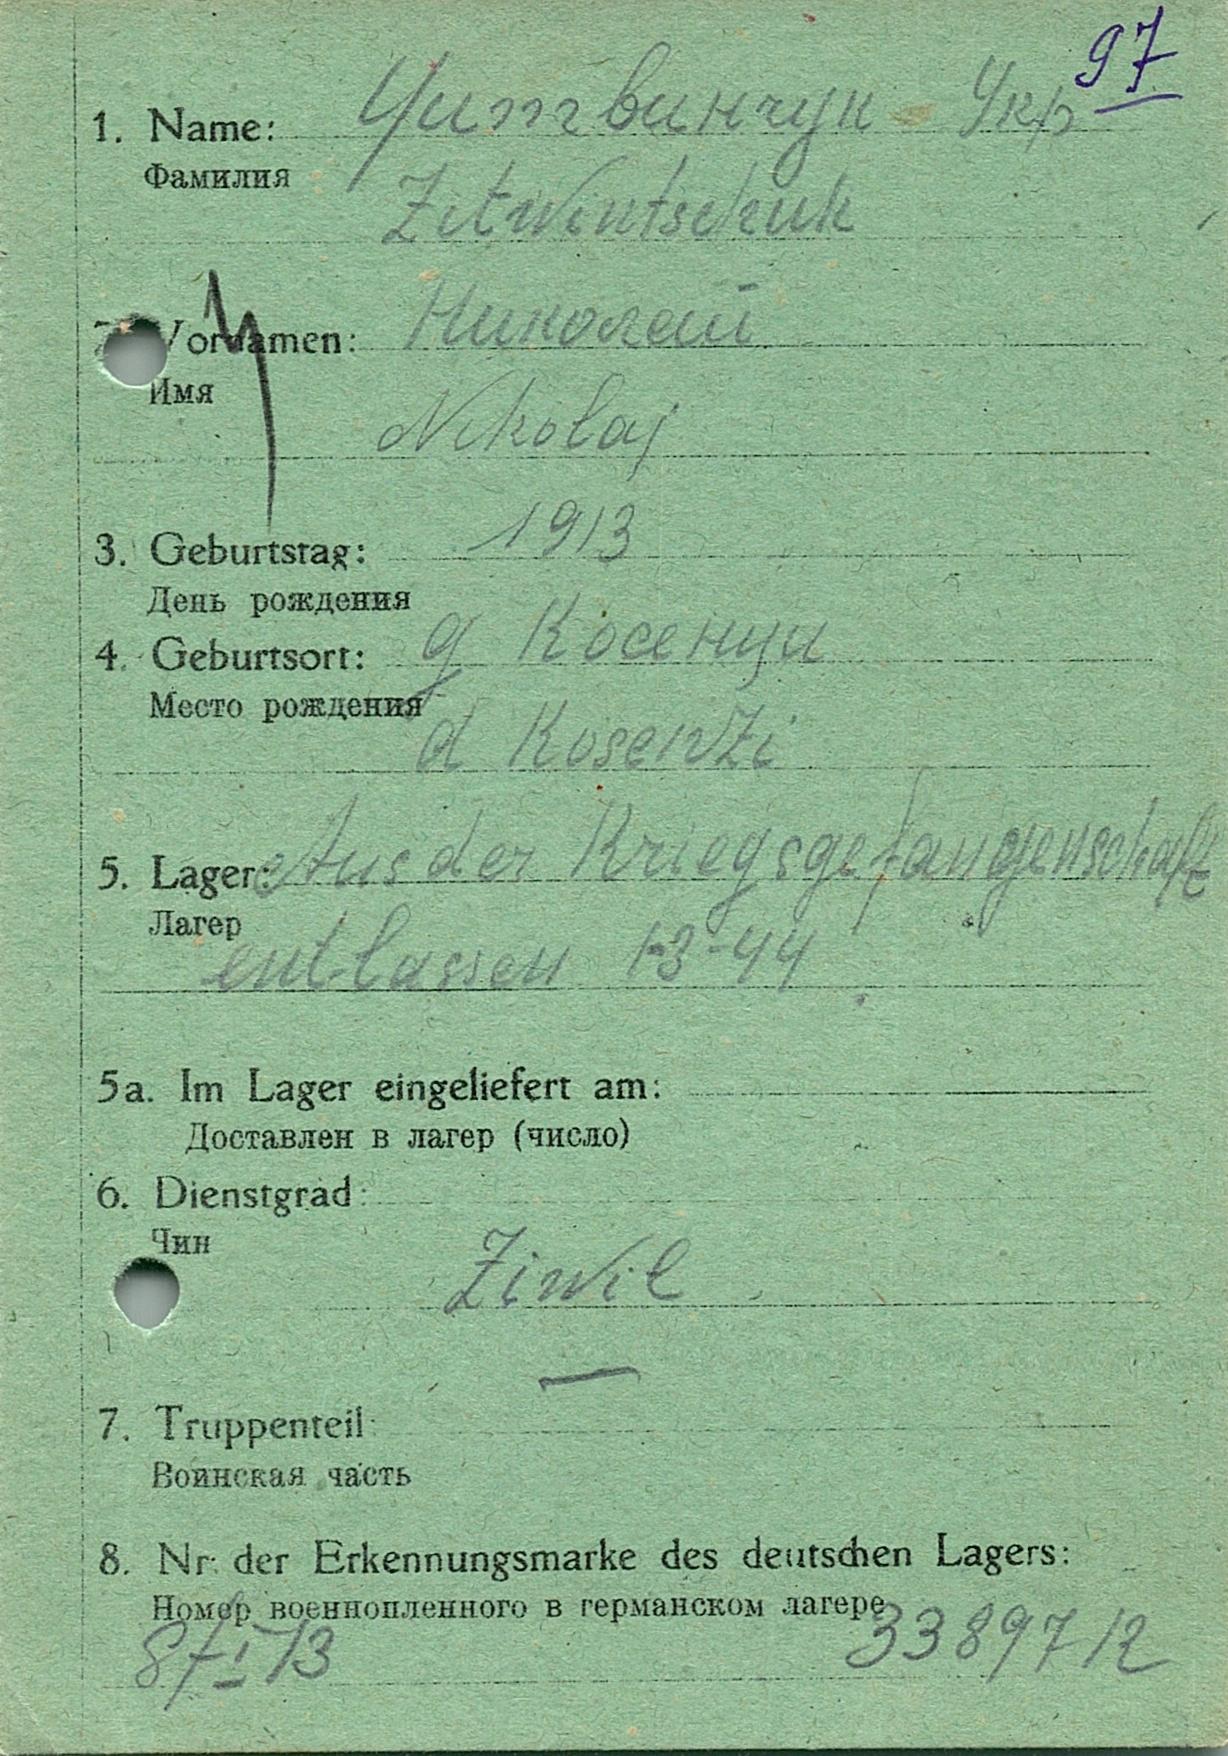 97
1. Name: Цитвинчук Укр
Фамилия
Zitwintschuk
Vornamen: Николай
Имя
Nikolaj
3. Geburtstag: 1913
День рождения
4. Geburtsort: д Косенци
Место рождения
d Kosenzi
5. Lager: Aus der Kriegsgefangenschaft
Лагер
entlassen 1-3-44
5a. Im Lager eingeliefert am:
Доставлен в лагер (число)
6. Dienstgrad:
Чин
Ziwil
—
7. Truppenteil
Воинская часть
8. Nr. der Erkennungsmarke des deutschen Lagers:
Номер военнопленного в германском лагере
33897/2